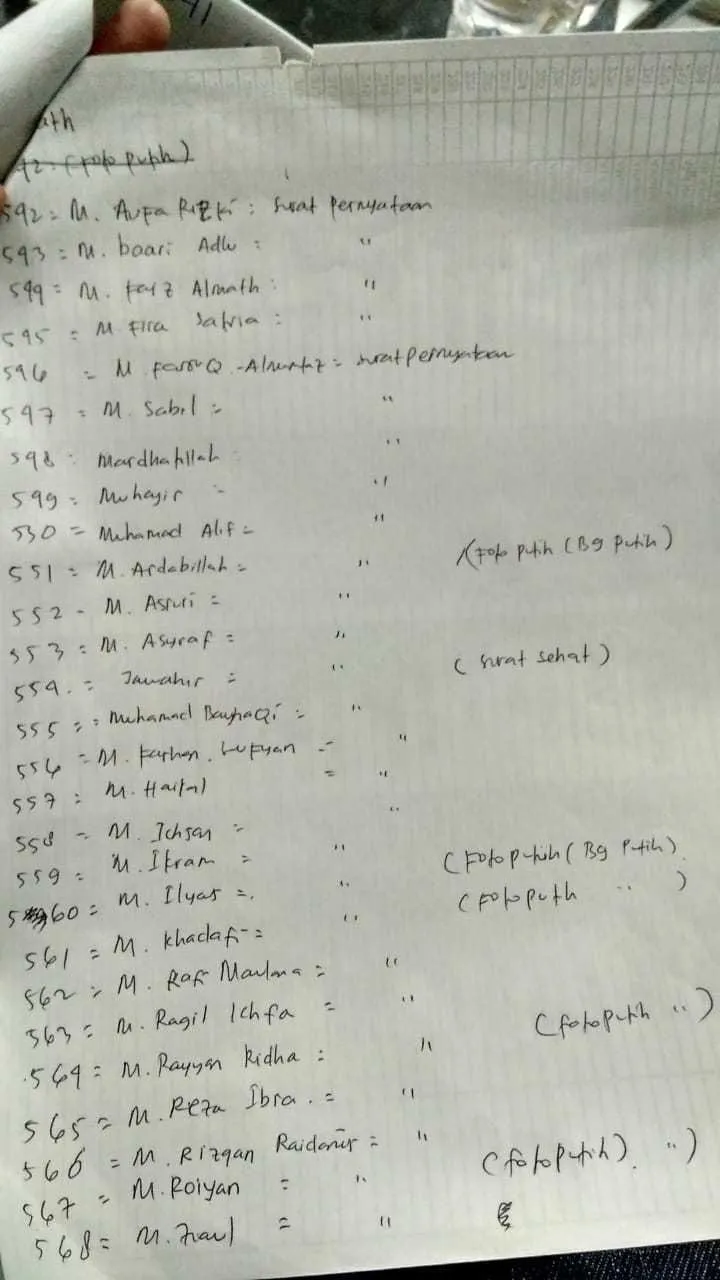 (Foto putih)
592 = M. Aufa Rizki : Surat Pernyataan
593 = M. baari Adlu : "
599 = M. Faiz Almath : "
595 = M. Fira Satria : "
596 = M Farouq = surat pernyataan
597 = M. Sabil = "
598 : Mardhatillah "
599 = Muhajir = "
530 = Muhamad Alif = "
551 = M. Ardabillah = " (Foto putih (Bg putih)
552 - M. Asruri = "
553 = M. Asyraf = "
554. = Jawahir = " (surat sehat)
555 = = Muhamad BayhaQi = "
556 = M. Farhan. Lufyan = "
557 = M. Haital = "
558 = M. Ichsan = "
559 = M. Ikram = " (Foto putih (Bg Putih)
560 = M. Ilyas =. " (Foto puth " )
561 = M. Khadafi = "
562 = M. Rafi Maulana = "
563 = M. Ragil Ichfa = "
564 = M. Rayyan Ridha : " (foto putih " )
565 = M. Reza Ibra. = "
566 = M. Rizqan Raidanur = "
567 = M. Roiyan = " (foto putih). ")
568 = M. = "